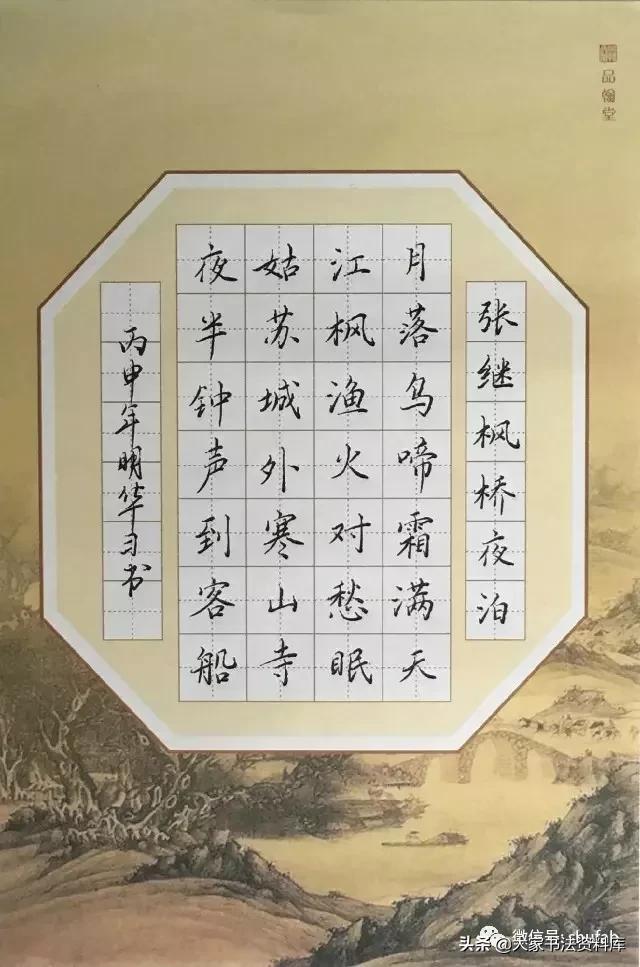 品翰堂
张继枫桥夜泊
月落乌啼霜满天
江枫渔火对愁眠
姑苏城外寒山寺
夜半钟声到客船
丙申年明华习书
微信号: shufab
头条 @大家书法资料库